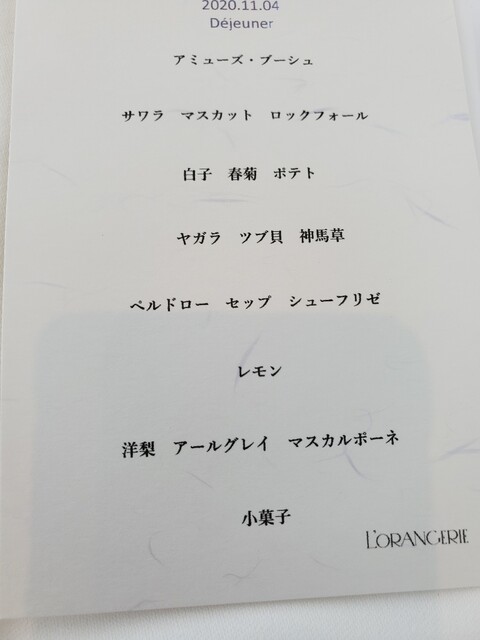 2020.11.04
Déjeuner
アミューズ・ブーシュ
サワラ　マスカット　ロックフォール
白子　春菊　ポテト
ヤガラ　ツブ貝　神馬草
ペルドロー　セップ　シューフリゼ
レモン
洋梨　アールグレイ　マスカルポーネ
小菓子
L'ORANGERIE